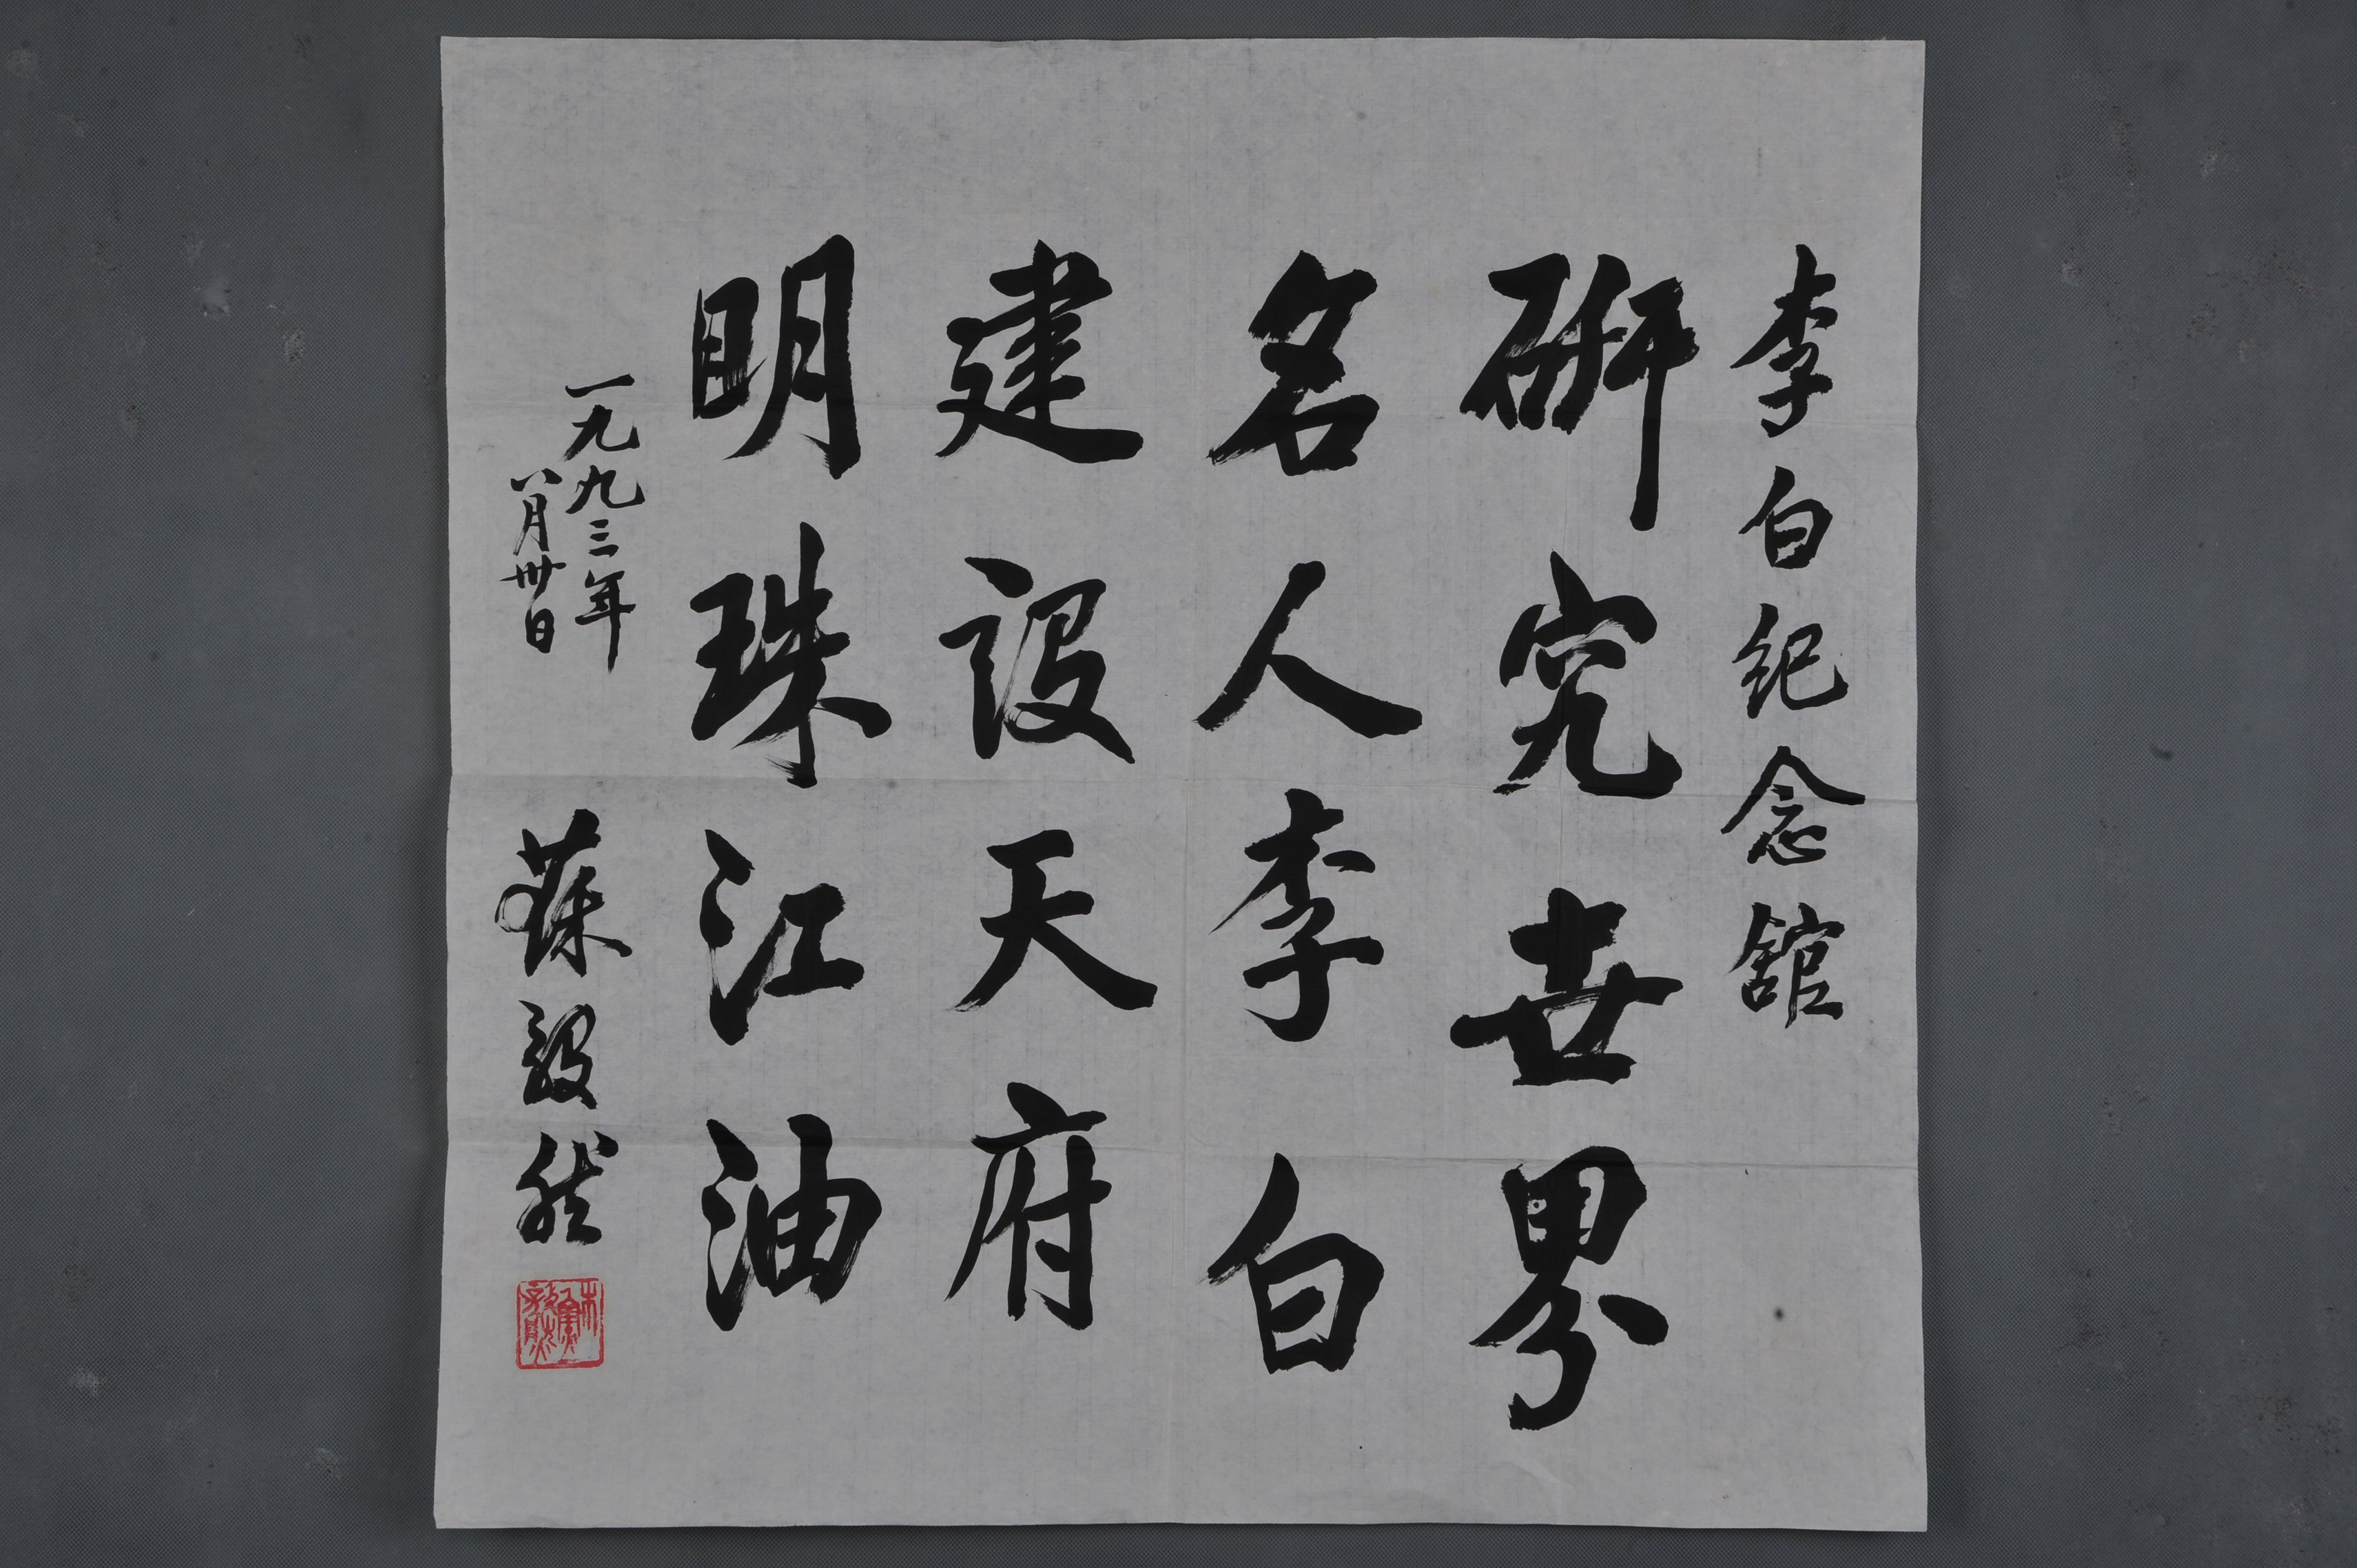 李白纪念舘
研究世界
名人李白
建设天府
明珠江油
一九九三年
八月卅日
苏毅然